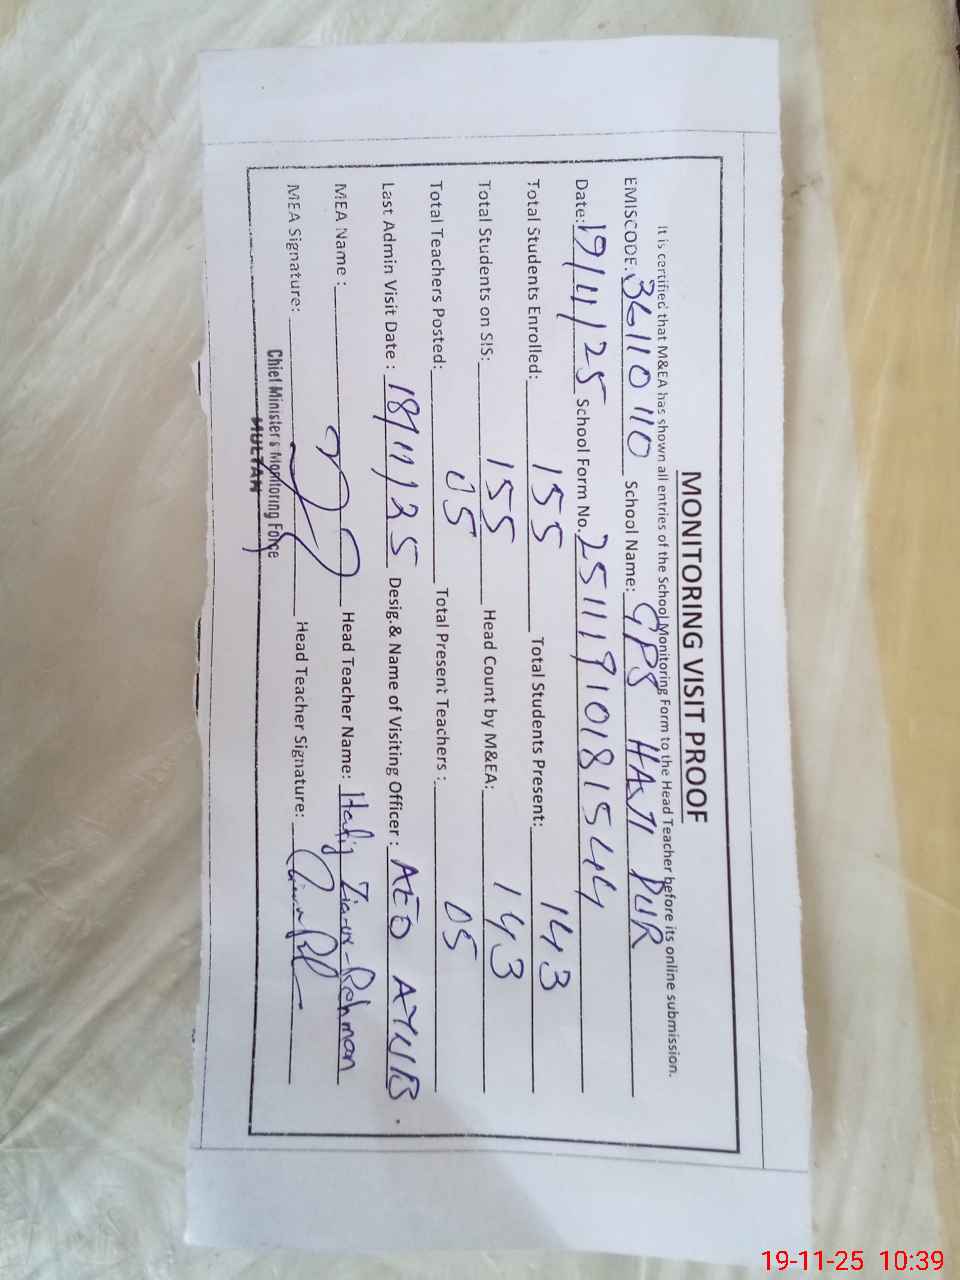 MONITORING VISIT PROOF
It is certified that M&EA has shown all entries of the School Monitoring Form to the Head Teacher before its online submission.
EMISCODE: 36110110 School Name: GPS HAJI PUR
Date: 19/11/25 School Form No. 25111910181544
Total Students Enrolled: 155 Total Students Present: 143
Total Students on SIS: 155 Head Count by M&EA: 143
Total Teachers Posted: 05 Total Present Teachers : 05
Last Admin Visit Date : 18/11/25 Desig.& Name of Visiting Officer : AEO AYUB.
MEA Name : Head Teacher Name: Hafiz Zia-ur-Rehman
MEA Signature: Head Teacher Signature:
Chief Minister's Monitoring Force
MULTAN
19-11-25 10:39